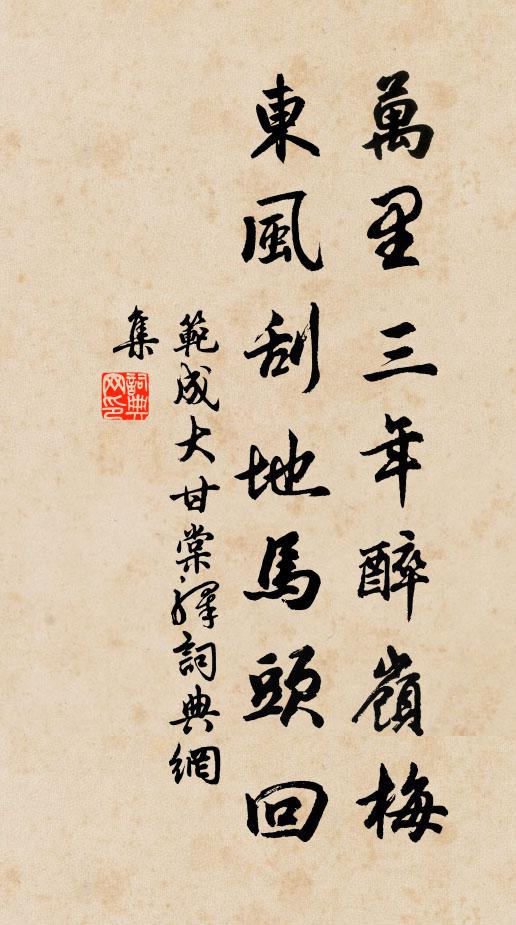 萬里三年醉嶺梅
東風刮地馬頭回
範成大甘棠驛詞典網
集
詞典網印